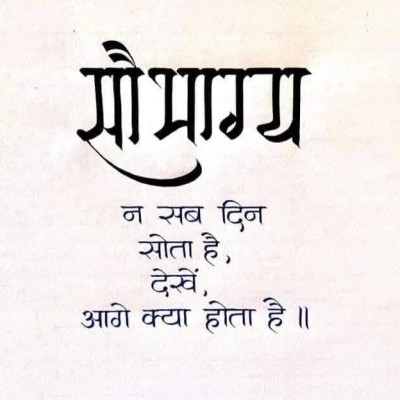 सौभाग्य
न सब दिन
सोता है,
देखें,
आगे क्या होता है ॥